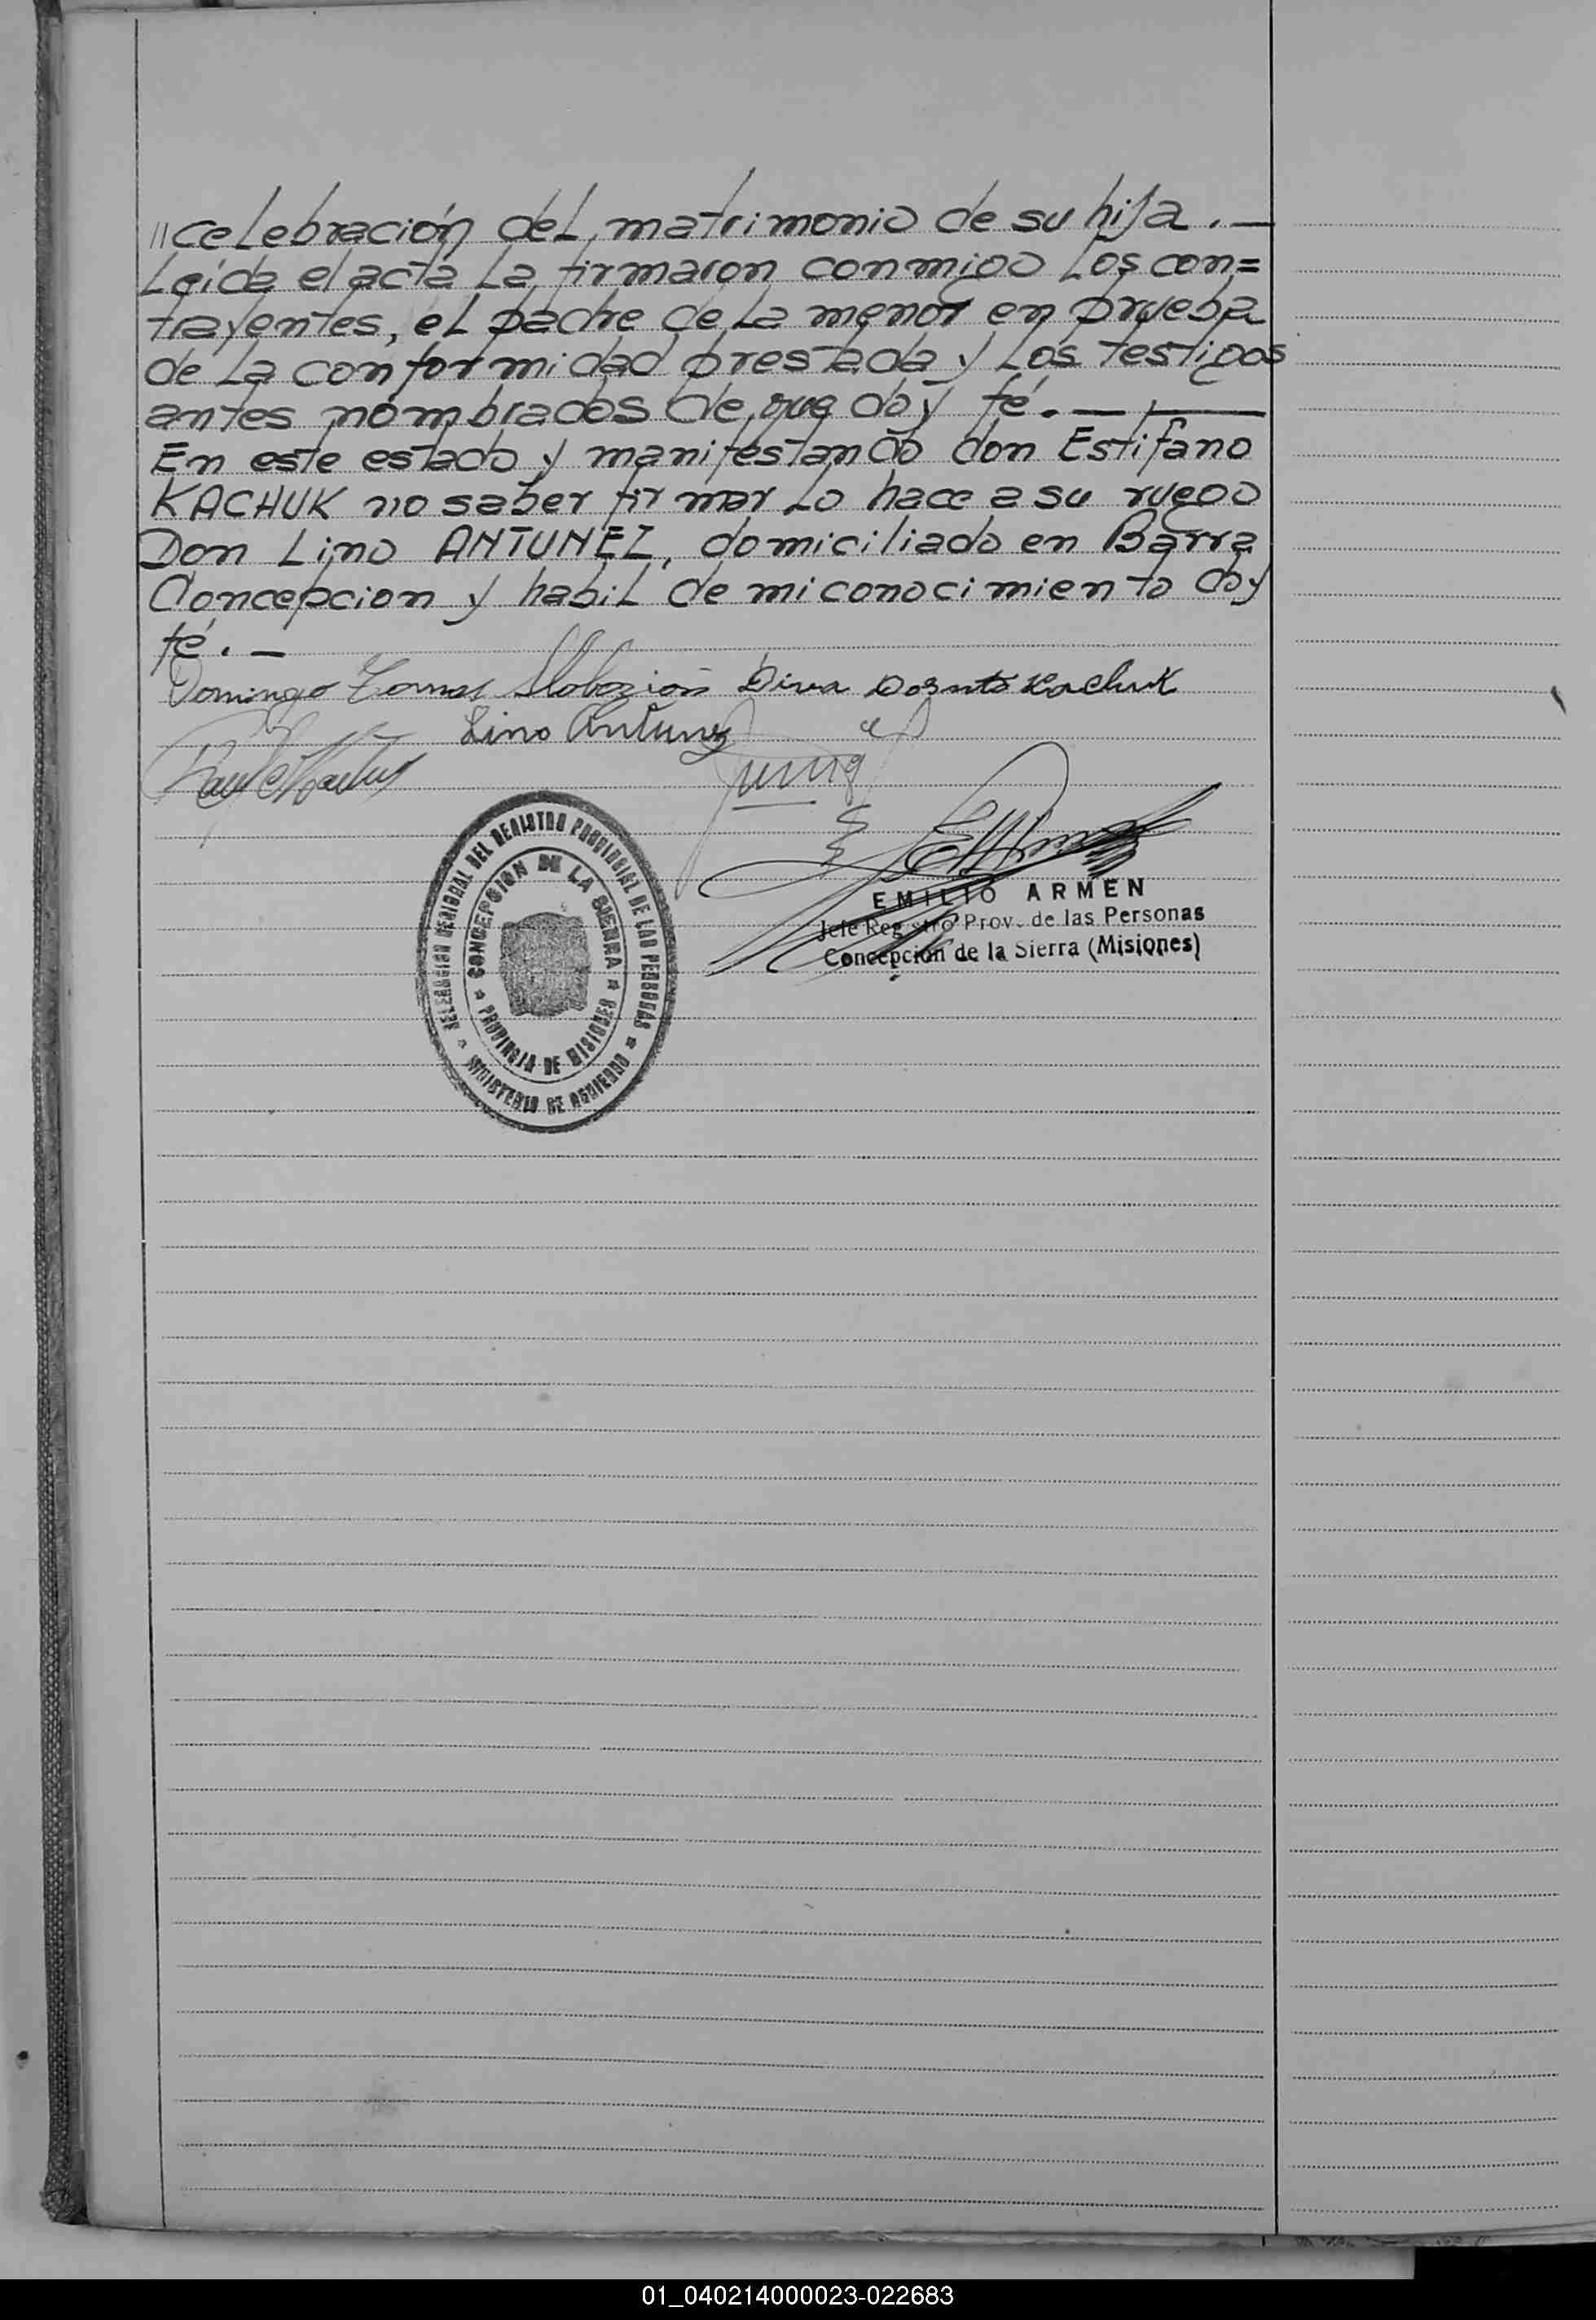 "celebración del matrimonio de su hija.—
Leída el acta la firmaron conmigo los con=
trayentes, el padre de la menor en prueba
de la conformidad prestada y los testigos
antes nombrados de que doy fé.— —
En este estado y manifestando don Estifano
KACHUK no saber firmar lo hace a su ruego
Don Lino ANTUNEZ, domiciliado en Barra
Concepcion y habil de mi conocimiento doy
fé.—
Domingo Tomas Diva Kachuk
Lino Antunez
DELEGACION REGIONAL DEL REGISTRO PROVINCIAL DE LAS PERSONAS
* MINISTERIO DE GOBIERNO *
CONCEPCION DE LA SIERRA
* PROVINCIA DE MISIONES *
EMILIO ARMEN
Jefe Registro Prov. de las Personas
Concepción de la Sierra (Misiones)
01_040214000023-022683